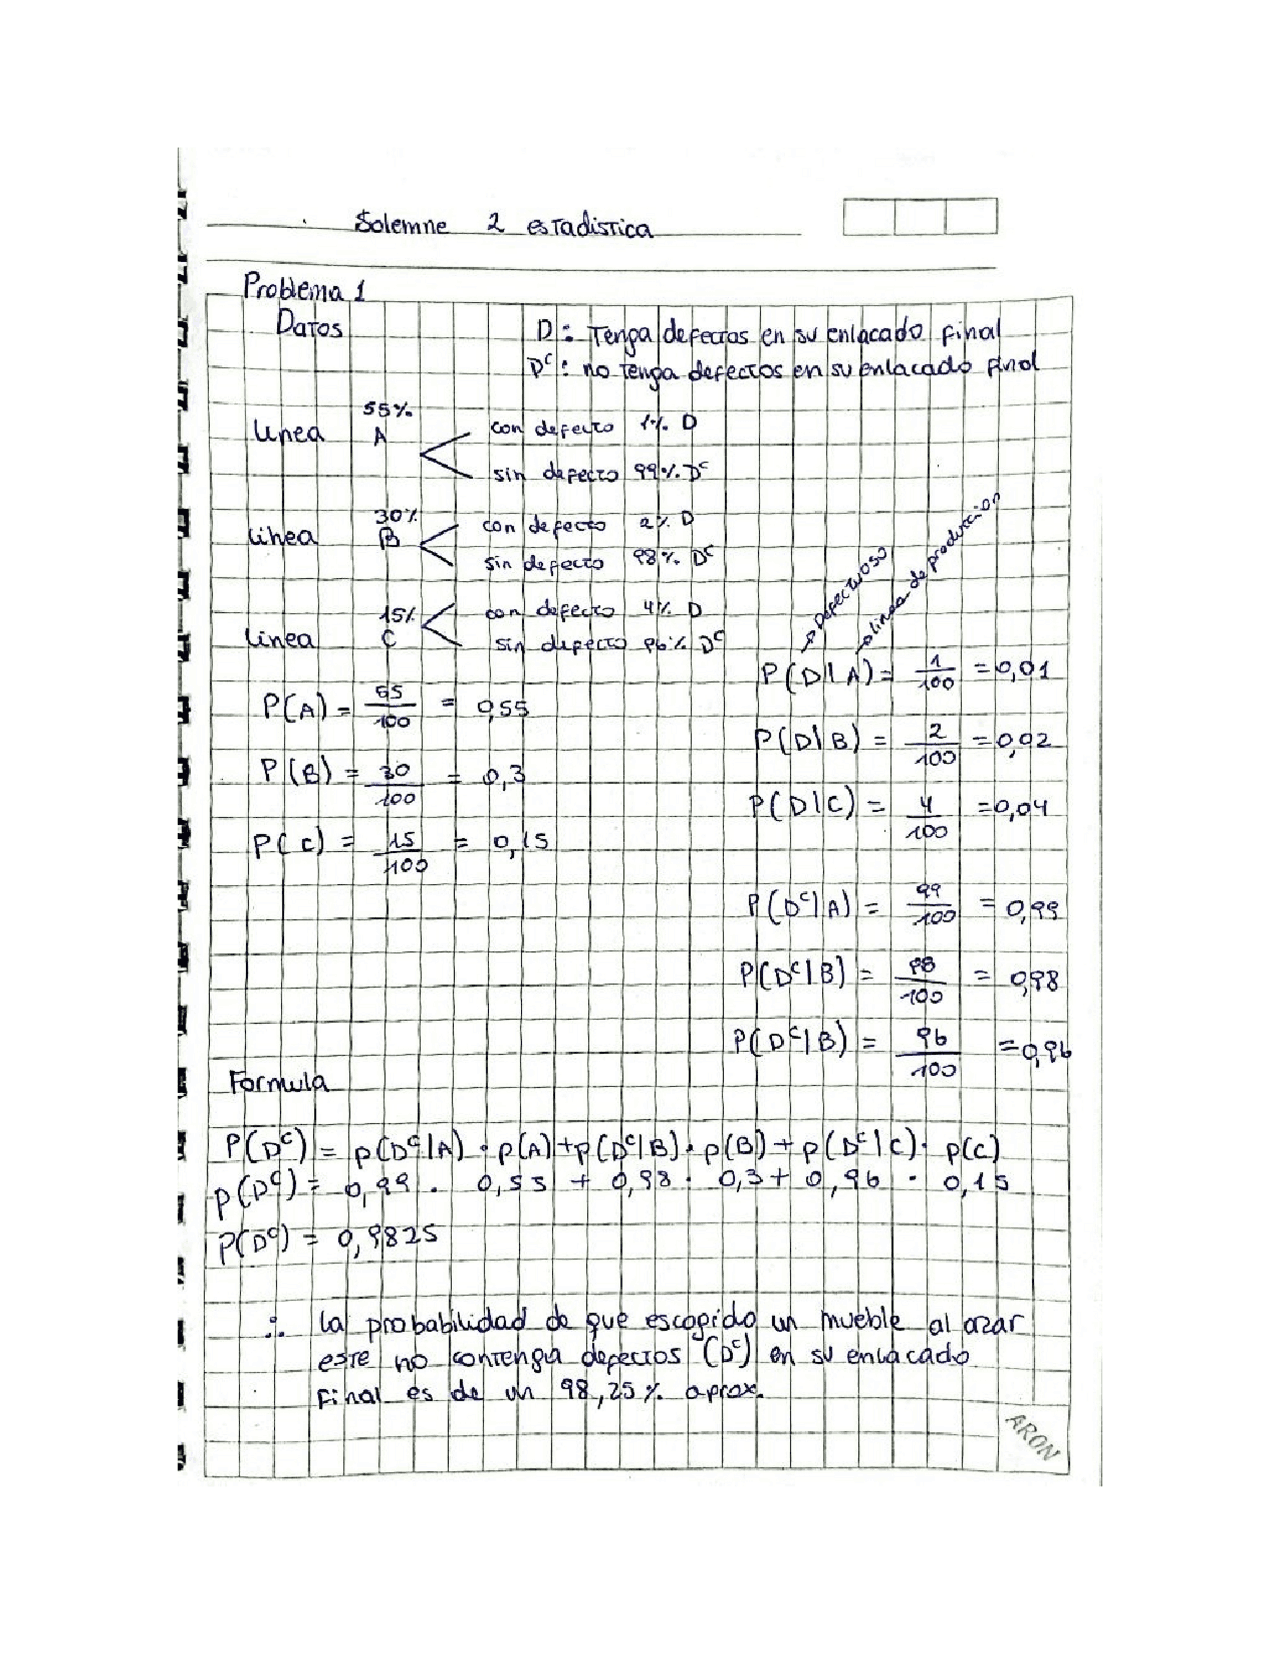 Solemne 2 estadistica
Problema 1
Datos
D: Tenga defectos en su enlacado final
Dᶜ: no tenga defectos en su enlacado final
55%
Linea A
con defecto 1% D
sin defecto 99% Dᶜ
30%
Linea B
con defecto 2% D
sin defecto 98% Dᶜ
15%
Linea C
con defecto 4% D
sin defecto 96% Dᶜ
Defectuoso
linea de produccion
P(A) = 55/100 = 0,55
P(B) = 30/100 = 0,3
P(C) = 15/100 = 0,15
P(D|A) = 1/100 = 0,01
P(D|B) = 2/100 = 0,02
P(D|C) = 4/100 = 0,04
P(Dᶜ|A) = 99/100 = 0,99
P(Dᶜ|B) = 98/100 = 0,98
P(Dᶜ|B) = 96/100 = 0,96
Formula
P(Dᶜ) = p(Dᶜ|A) · p(A) + p(Dᶜ|B) · p(B) + p(Dᶜ|C) · p(C)
p(Dᶜ) = 0,99 · 0,55 + 0,98 · 0,3 + 0,96 · 0,15
P(Dᶜ) = 0,9825
∴ La probabilidad de que escogido un mueble al azar
este no contenga defectos (Dᶜ) en su enlacado
final es de un 98,25% aprox.
ARON